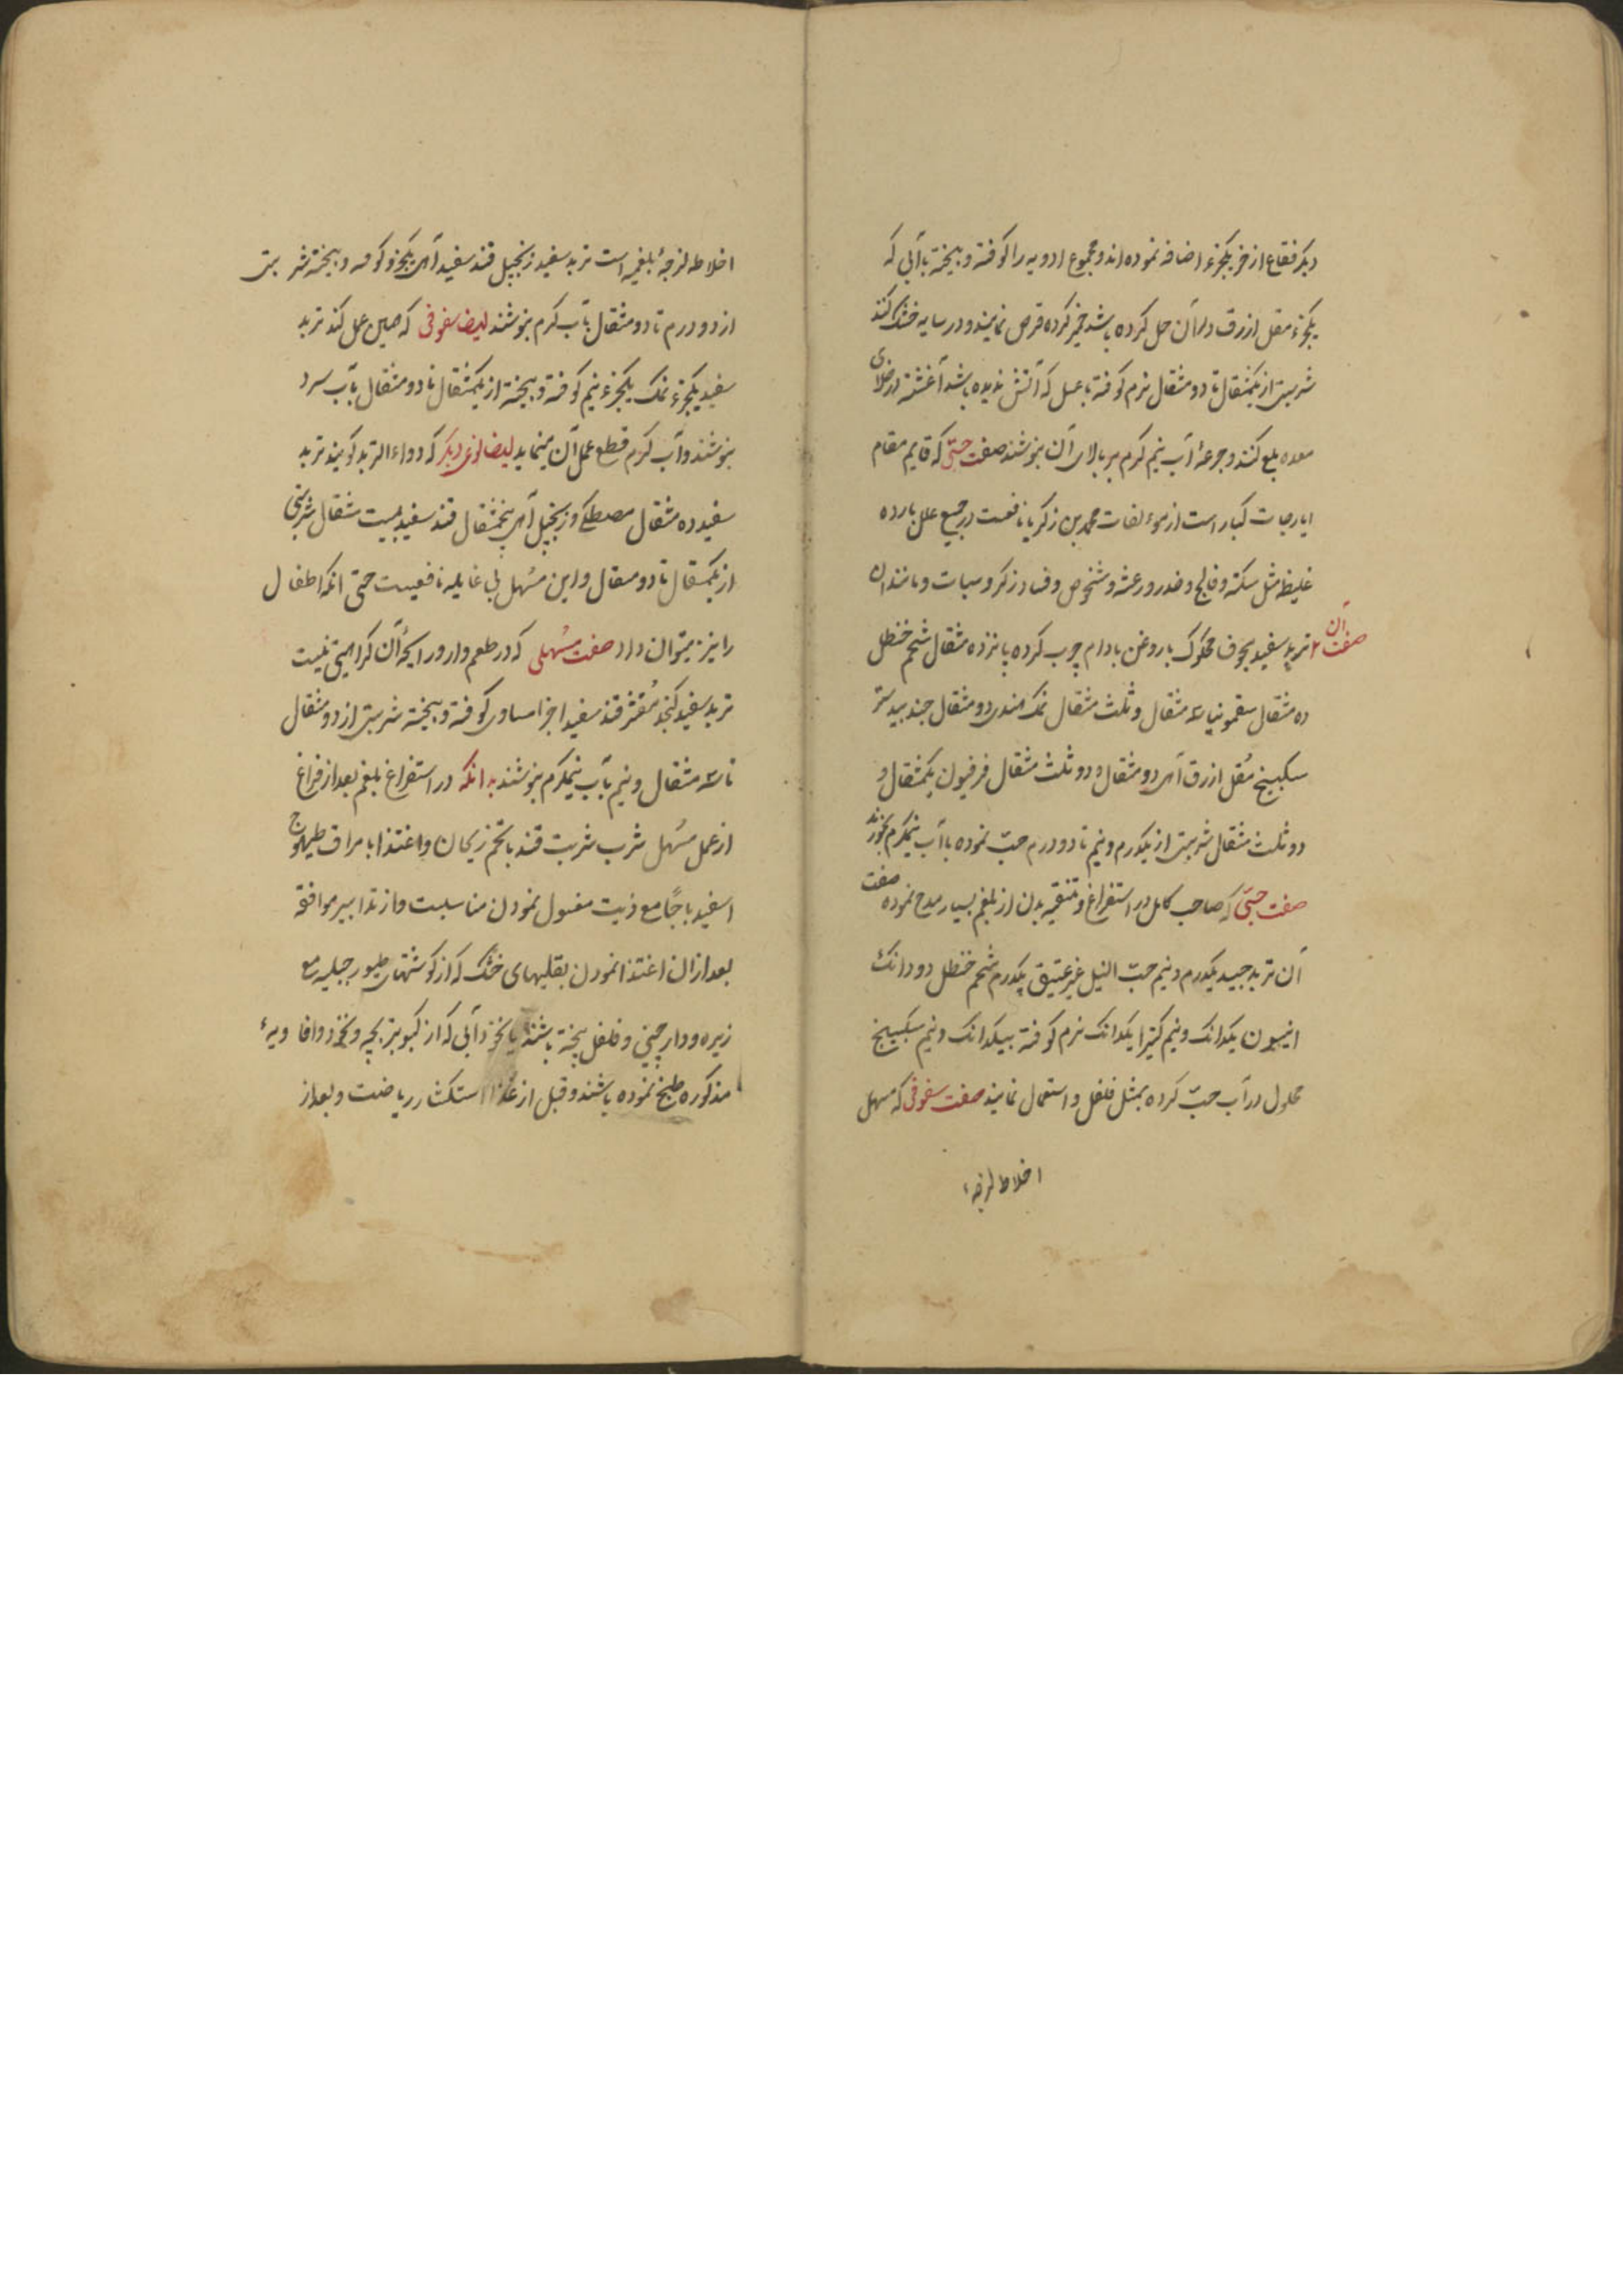 دیگر فقاع اذخر یکجزء اضافه نموده اند و مجموع ادویه را کوفته و بیخته بآبی که
یکجزء مقل ازرق در آن حل کرده باشد خمیر کرده قرص نمایند و در سایه خشک کنند
شربتی از یکمثقال تا دو مثقال نرم کوفته با عسل که آتش ندیده باشد آغشته در خلای
معده بلع کنند و جرعهٔ آب نیم کرم بر بالای آن بنوشند صفت حبّی که قایم مقام
ایارجات کبار است از مؤلفات محمد بن زکریا نافعست در جمیع علل بارده
غلیظه مثل سکته و فالج و خدر و رعشه و شخوص و فساد ذکر و سبات و مانند ان
صفت آن تربد سفید مجوف محکوک با روغن بادام چرب کرده پانزده مثقال شحم حنظل
ده مثقال سقمونیا سه مثقال و ثلث مثقال نمک هندی دو مثقال جندبیدستر
سکبینج مُقل ازرق آه دو مثقال و دو ثلث مثقال فرفیون یکمثقال و
دو ثلث مثقال شربتی از یکدرم و نیم تا دو درم حبّ نموده بآب نیمکرم بخورند
صفت حبّی که صاحب کامل در استفراغ و تنقیه بدن از بلغم بسیار مدح نموده صفت
آن تربد جید یکدرم و نیم حبّ النیل غیر عتیق یکدرم شحم حنظل دو دانک
انیسون یکدانک و نیم کتیرا یکدانک نرم کوفته بیکدانک و نیم سکبینج
محلول در آب حبّ کرده بمثل فلفل و استعمال نمایند صفت سفوفی که مسهل
اخلاط لزجهٔ
اخلاط لزجهٔ بلغمیه است تربد سفید زنجبیل قند سفید آه یکجزو کوفته و بیخته شربتی
از دو درم تا دو مثقال بآب کرم بنوشند ایضا سفوفی که همین عمل کند تربد
سفید یکجزء نمک یکجزء نیم کوفته و بیخته از یکمثقال تا دو مثقال بآب سرد
بنوشند و آب کرم قطع عمل آن مینماید ایضا نوعی دیکر که دواء التربد کویند تربد
سفید ده مثقال مصطکی و زنجبیل آه پنجمثقال قند سفید بیست مثقال شربتی
از یکمثقال تا دو مثقال و این مسهل بی غایله نافعیست حتی انکه اطفال
را نیز میتوان داد صفت مُسهلی که در طعم و ار و رایحهٔ آن کراهیتی نیست
تربد سفید کنجد مُقشر قند سفید اجزا مساوی کوفته و بیخته شربتی از دو مثقال
تا سه مثقال و نیم بآب نیمکرم بنوشند بدانکه در استفراغ بلغم بعد از فراغ
از عمل مُسهل شرب شربت قند با تخم ریحان و اغتذا بامراق طیهوج
اسفیدباجًا مع زیت مغسول نمودن مناسبست و از تدابیر موافقه
بعد از ان اغتذا نمودن بقلیهای خشک که از کوشتهای طیور جبلیه مع
زیره و دارچینی و فلفل پخته باشند یا بخود آبی که از کبوتر بچه و نخود و افاویهٔ
مذکوره طبخ نموده باشند و قبل از غذا استکثار ریاضت و بعد از